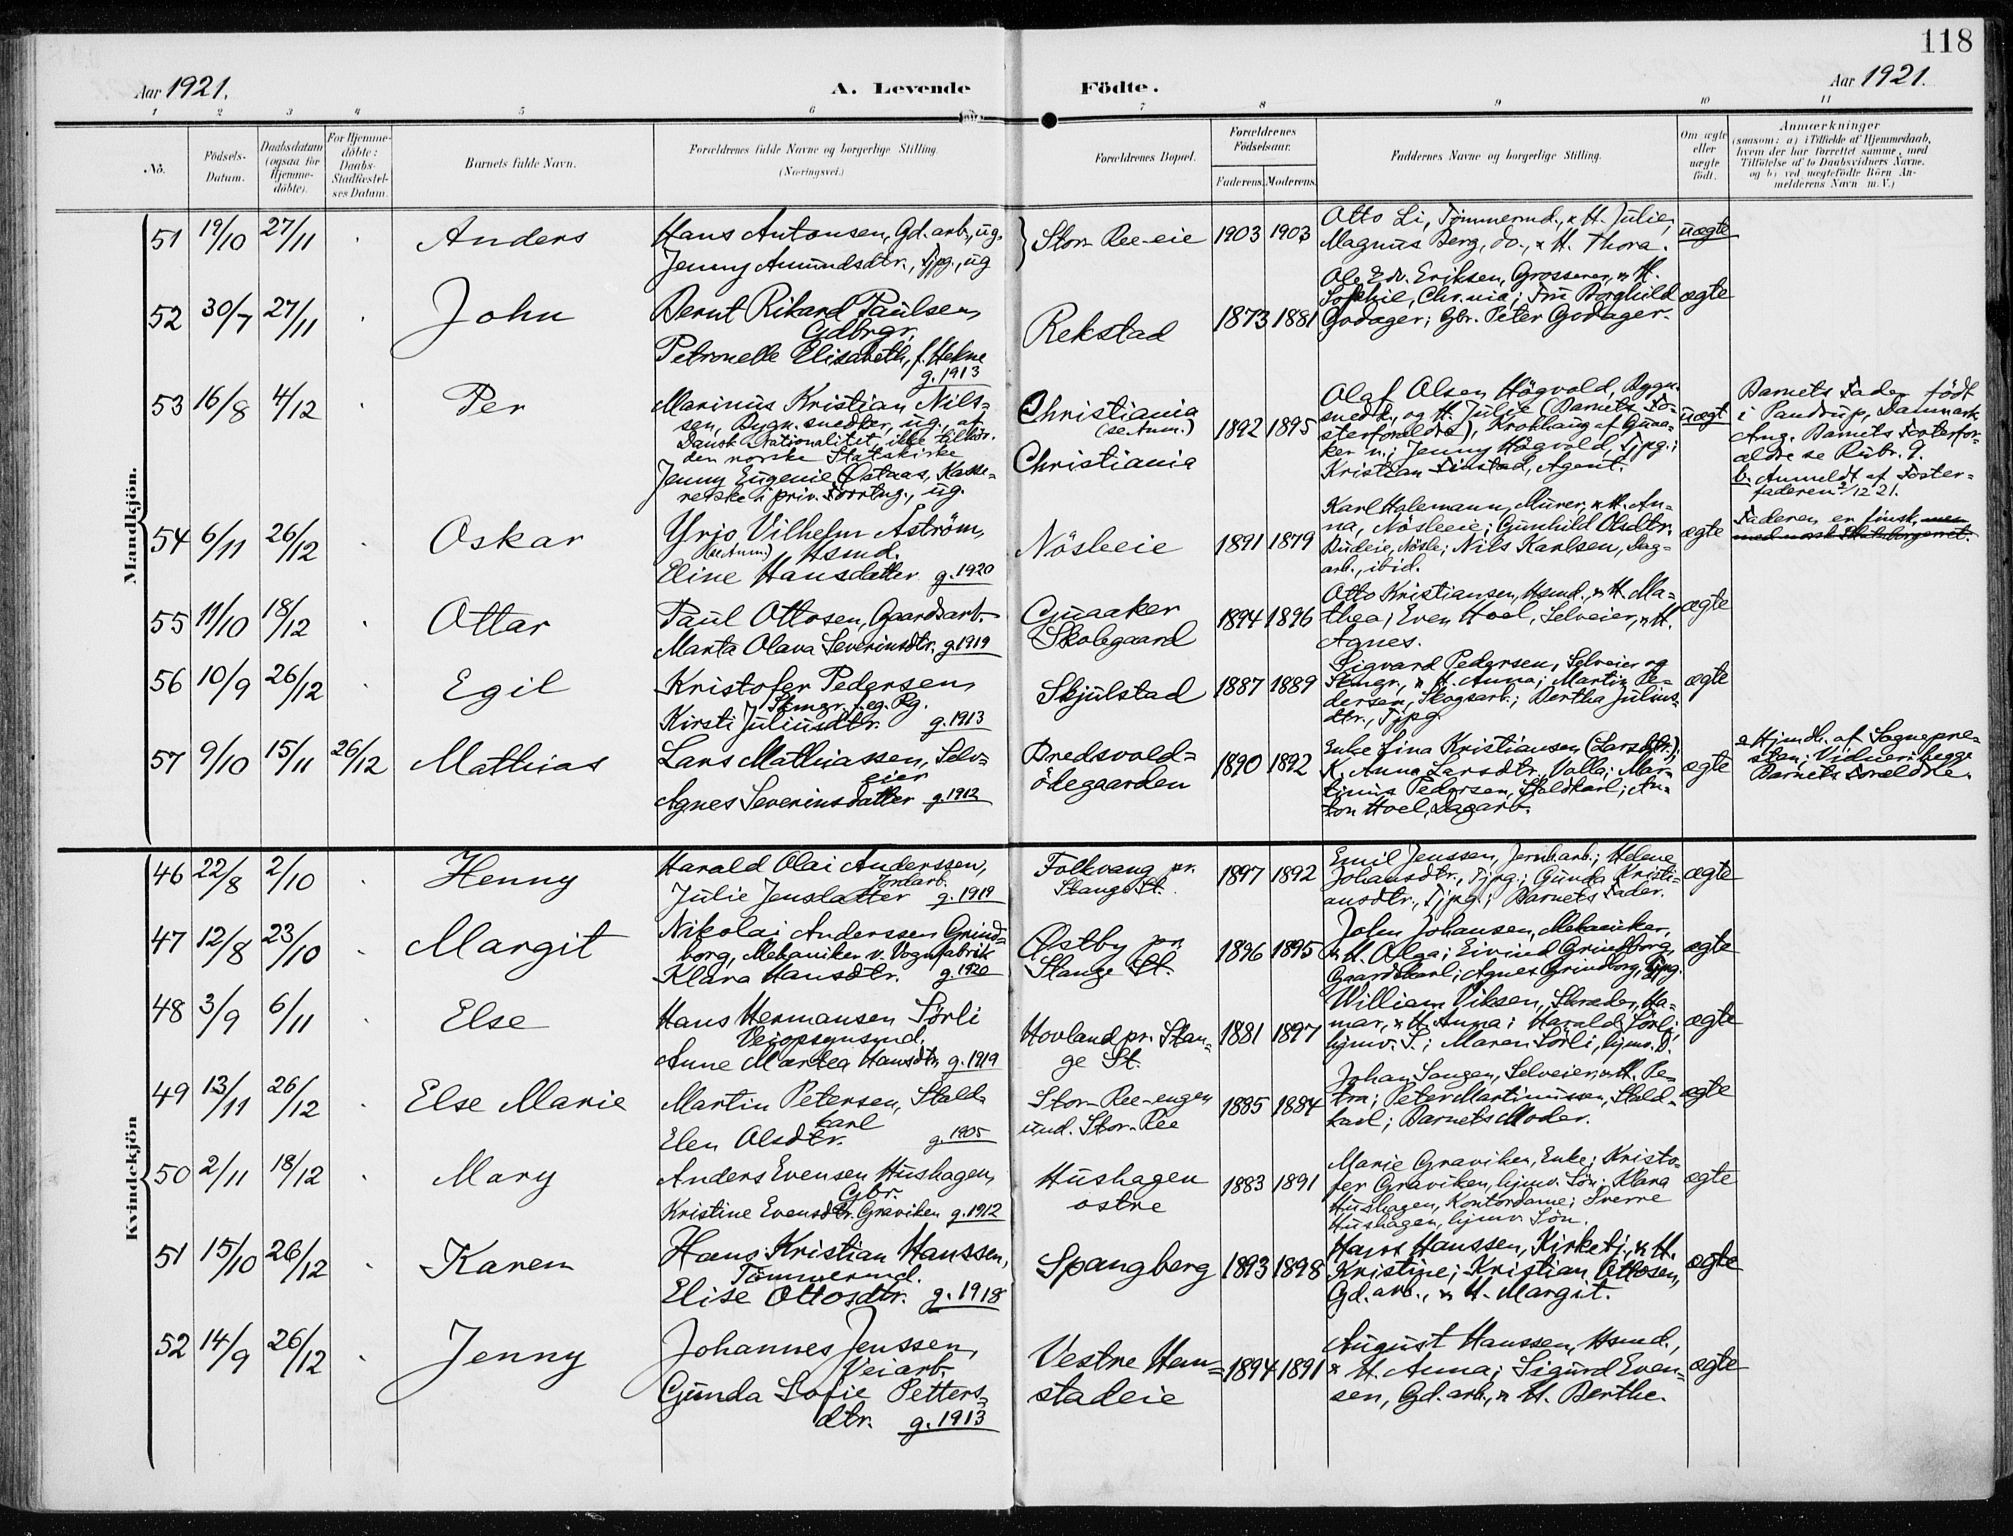 118
Aar 1921.
A. Levende Födte.
Aar 1921.
1 2 3 4 5 6 7 8 9 10 11
No.
Födsels-
Datum.
Daabsdatum
(ogsaa for
Hjemme-
döbte).
For Hjemme-
döbte:
Daabs-
Stadfæstel-
ses Datum.
Barnets fulde Navn.
Forældrenes fulde Navne og borgerlige Stilling
(Næringsvei.)
Forældrenes Bopæl.
Forældrenes
Födselsaar.
Faderens. Moderens.
Faddernes Navne og borgerlige Stilling.
Om ægte
eller
uægte
født.
Anmærkninger
(saasom: a) i Tilfælde af Hjemmedaab,
hvem der har forrettet samme, med
Tilföielse af to Daabsvidners Navne.
og b) ved uægtefödte Börn An-
melderens Navn m. V.)
Mandkjön.
51 19/10 27/11 Anders
Hans Antonsen, Gd. arb., ug.
Jenny Amundsdtr., Tjpg., ug
Stor-Ree-eie 1903 1903
Otto Li, Tömmermd., & H. Julie;
Magnus Berg, do., & H. Thora.
uægte
52 30/7 27/11 John
Bernt Rikard Paulsen,
Gdbrgr.
Petronelle Elisabeth, f. Hekne
g. 1913
Rekstad 1873 1881
Ole Edv. Eriksen, Grosserer, & H.
Sophie, Chr.nia; Fru Borghild
Godager; Gbr. Peter Godager.
ægte
53 16/8 4/12 Per
Marinus Kristian Nils-
sen, Bygn. snedker, ug., af
Dansk Nationalitet, ikke tilhör.
den norske Statskirke
Jenny Eugenie Østaas, Kasse-
rerske i priv. Forretng., ug.
Christiania
(se Anm.)
Christiania
1892 1895
Olaf Olsen Högvold, Bygn.
snedk., og H. Julie (Barnets Fo-
sterforældre), Krokhaug af Guaa-
ker n.; Jenny Högvold, Tjpg.;
Kristian Finstad, Agent.
uægt
Barnets Fader född
i Pandrup, Danmark
Ang. Barnets Fosterfor-
ældre se Rubr. 9.
b. Anmeldt af Foster-
faderen 2/12 21.
54 6/11 26/12 Oskar
Yrjo Vilhelm Åström,
(se Anm.) Hsmd.
Eline Hansdatter g. 1920
Nösleeie 1891 1879
Karl Holemann, Murer, & H. An-
na, Nösleeie; Gunhild Olsdtr.
Budeie, Nösle; Nils Karlsen, Dag-
arb., ibid.
ægte
Faderen er finsk, men
med norsk Statsborgerret.
55 11/10 18/12 Ottar
Paul Ottosen, Gaardsarb.
Marta Olava Severinsdtr. g. 1919
Guaaker
Skolegaard
1894 1896
Otto Kristiansen, Hsmd., & H. Ma-
thea; Even Hoel, Selveier, & H.
Agnes.
ægte
56 10/9 26/12 Egil
Kristofer Pedersen,
Skmgr. f. eg. Rg.
Kirsti Juliusdtr. g. 1913
Skjulstad 1887 1889
Sigvard Pedersen, Selveier og
Skmgr., & H. Anna; Martin Pe-
dersen, Skogsarb.; Bertha Julius-
dtr., Tjpg.
ægte
57 9/10 15/11 26/12 Mathias
Lars Mathiassen, Selv-
eier
Agnes Severinsdatter g. 1912
Bredsvold-
ödegaarden
1890 1892
Enke Lina Kristiansen (Larsdtr.);
K. Anna Larsdtr. Valla; Mar-
tinius Pedersen, Staldkarl; An-
ton Hoel, Dagarb.
ægte
a Hjmdb. af Sognepre-
sten; Vidner: begge
Barnets Forældre.
Kvindekjön
46 22/8 2/10 Henny
Harald Olai Anderssen,
Jordarb.
Julie Jensdatter g. 1919
Folkvang pr.
Stange St.
1897 1892
Emil Jenssen, Jernb.arb.; Helene
Johansdtr., Tjpg.; Gunda Kristi-
ansdtr., Tjpg.; Barnets Fader.
ægte
47 12/8 23/10 Margit
Nikolai Anderssen Grind-
borg, Mekaniker v. Vognfabrik
Klara Hansdtr. g. 1920
Østby pr.
Stange St.
1896 1895
John Johansen, Mekaniker,
& H. Olga; Eivind Grindborg,
Gaardskarl; Agnes Grindborg, Tjpg.
ægte
48 3/9 6/11 Else
Hans Hermansen Sörli
Veiopsynsmd.
Anne Martea Hansdtr. g. 1919
Hovland pr. Stan-
ge St.
1881 1897
William Viksen, Skræder, Ha-
mar, & H. Anna; Harald Sörli,
hjmv. S.; Maren Sörli, hjmv. D.
ægte
49 13/11 26/12 Else Marie
Martin Petersen, Stald-
karl
Elen Olsdtr. g. 1905
Stor-Ree-engen
und. Stor-Ree
1885 1884
Johan Sangen, Selveier, & H. Pe-
tra; Peter Martinussen, Stald-
karl; Barnets Moder.
ægte
50 2/11 18/12 Mary
Anders Evensen Hushagen,
Gbr.
Kristine Evensdtr. Graviken g. 1912
Hushagen
östre
1883 1891
Marie Graviken, Enke; Kristo-
fer Graviken, hjmv. Sön; Klara
Hushagen, Kontordame; Sverre
Hushagen, hjmv. Sön.
ægte
51 15/10 26/12 Karen
Hans Kristian Hanssen,
Tömmermd.
Elise Ottosdtr. g. 1918
Spangberg 1893 1898
Hans Hanssen, Kirketj., & H.
Kristine; Kristian Ottosen,
Gd. arb., & H. Margit.
ægte
52 14/9 26/12 Jenny
Johannes Jenssen,
Veiarb.
Gunda Sofie Petters-
dtr. g. 1913
Vestre Hem-
stadeie
1894 1891
August Hanssen, Hsmd.,
& H. Anna; Sigurd Even-
sen, Gd. arb., & H. Berthe.
ægte